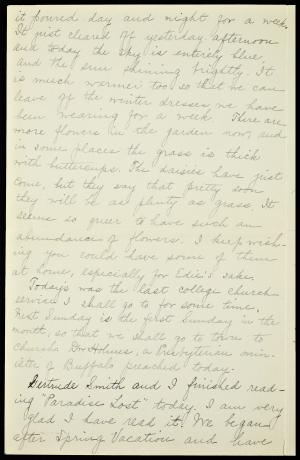 it poured day and night for a week.
It just cleared off yesterday afternoon
and today the sky is entirely blue
and the sun shining brightly. It
is much warmer too so that we can
leave off the winter dresses we have
been wearing for a week. There are
more flowers in the garden now, and
in some places the grass is thick
with buttercups. The daisies have just
come, but they say that pretty soon
they will be as plenty as grass. It
seems so queer to have such an
abundance of flowers. I keep wish-
ing you could have some of them
at home, especially for Edie's sake.
Today's was the last college church
service I shall go to for some time.
Next Sunday is the first Sunday in the
month, so that we shall go to town to
church. Dr. Holmes, a Presbyterian min-
ister of Buffalo preached today.
Gertrude Smith and I finished read-
ing "Paradise Lost" today. I am very
glad I have read it. We began
after Spring Vacation and have